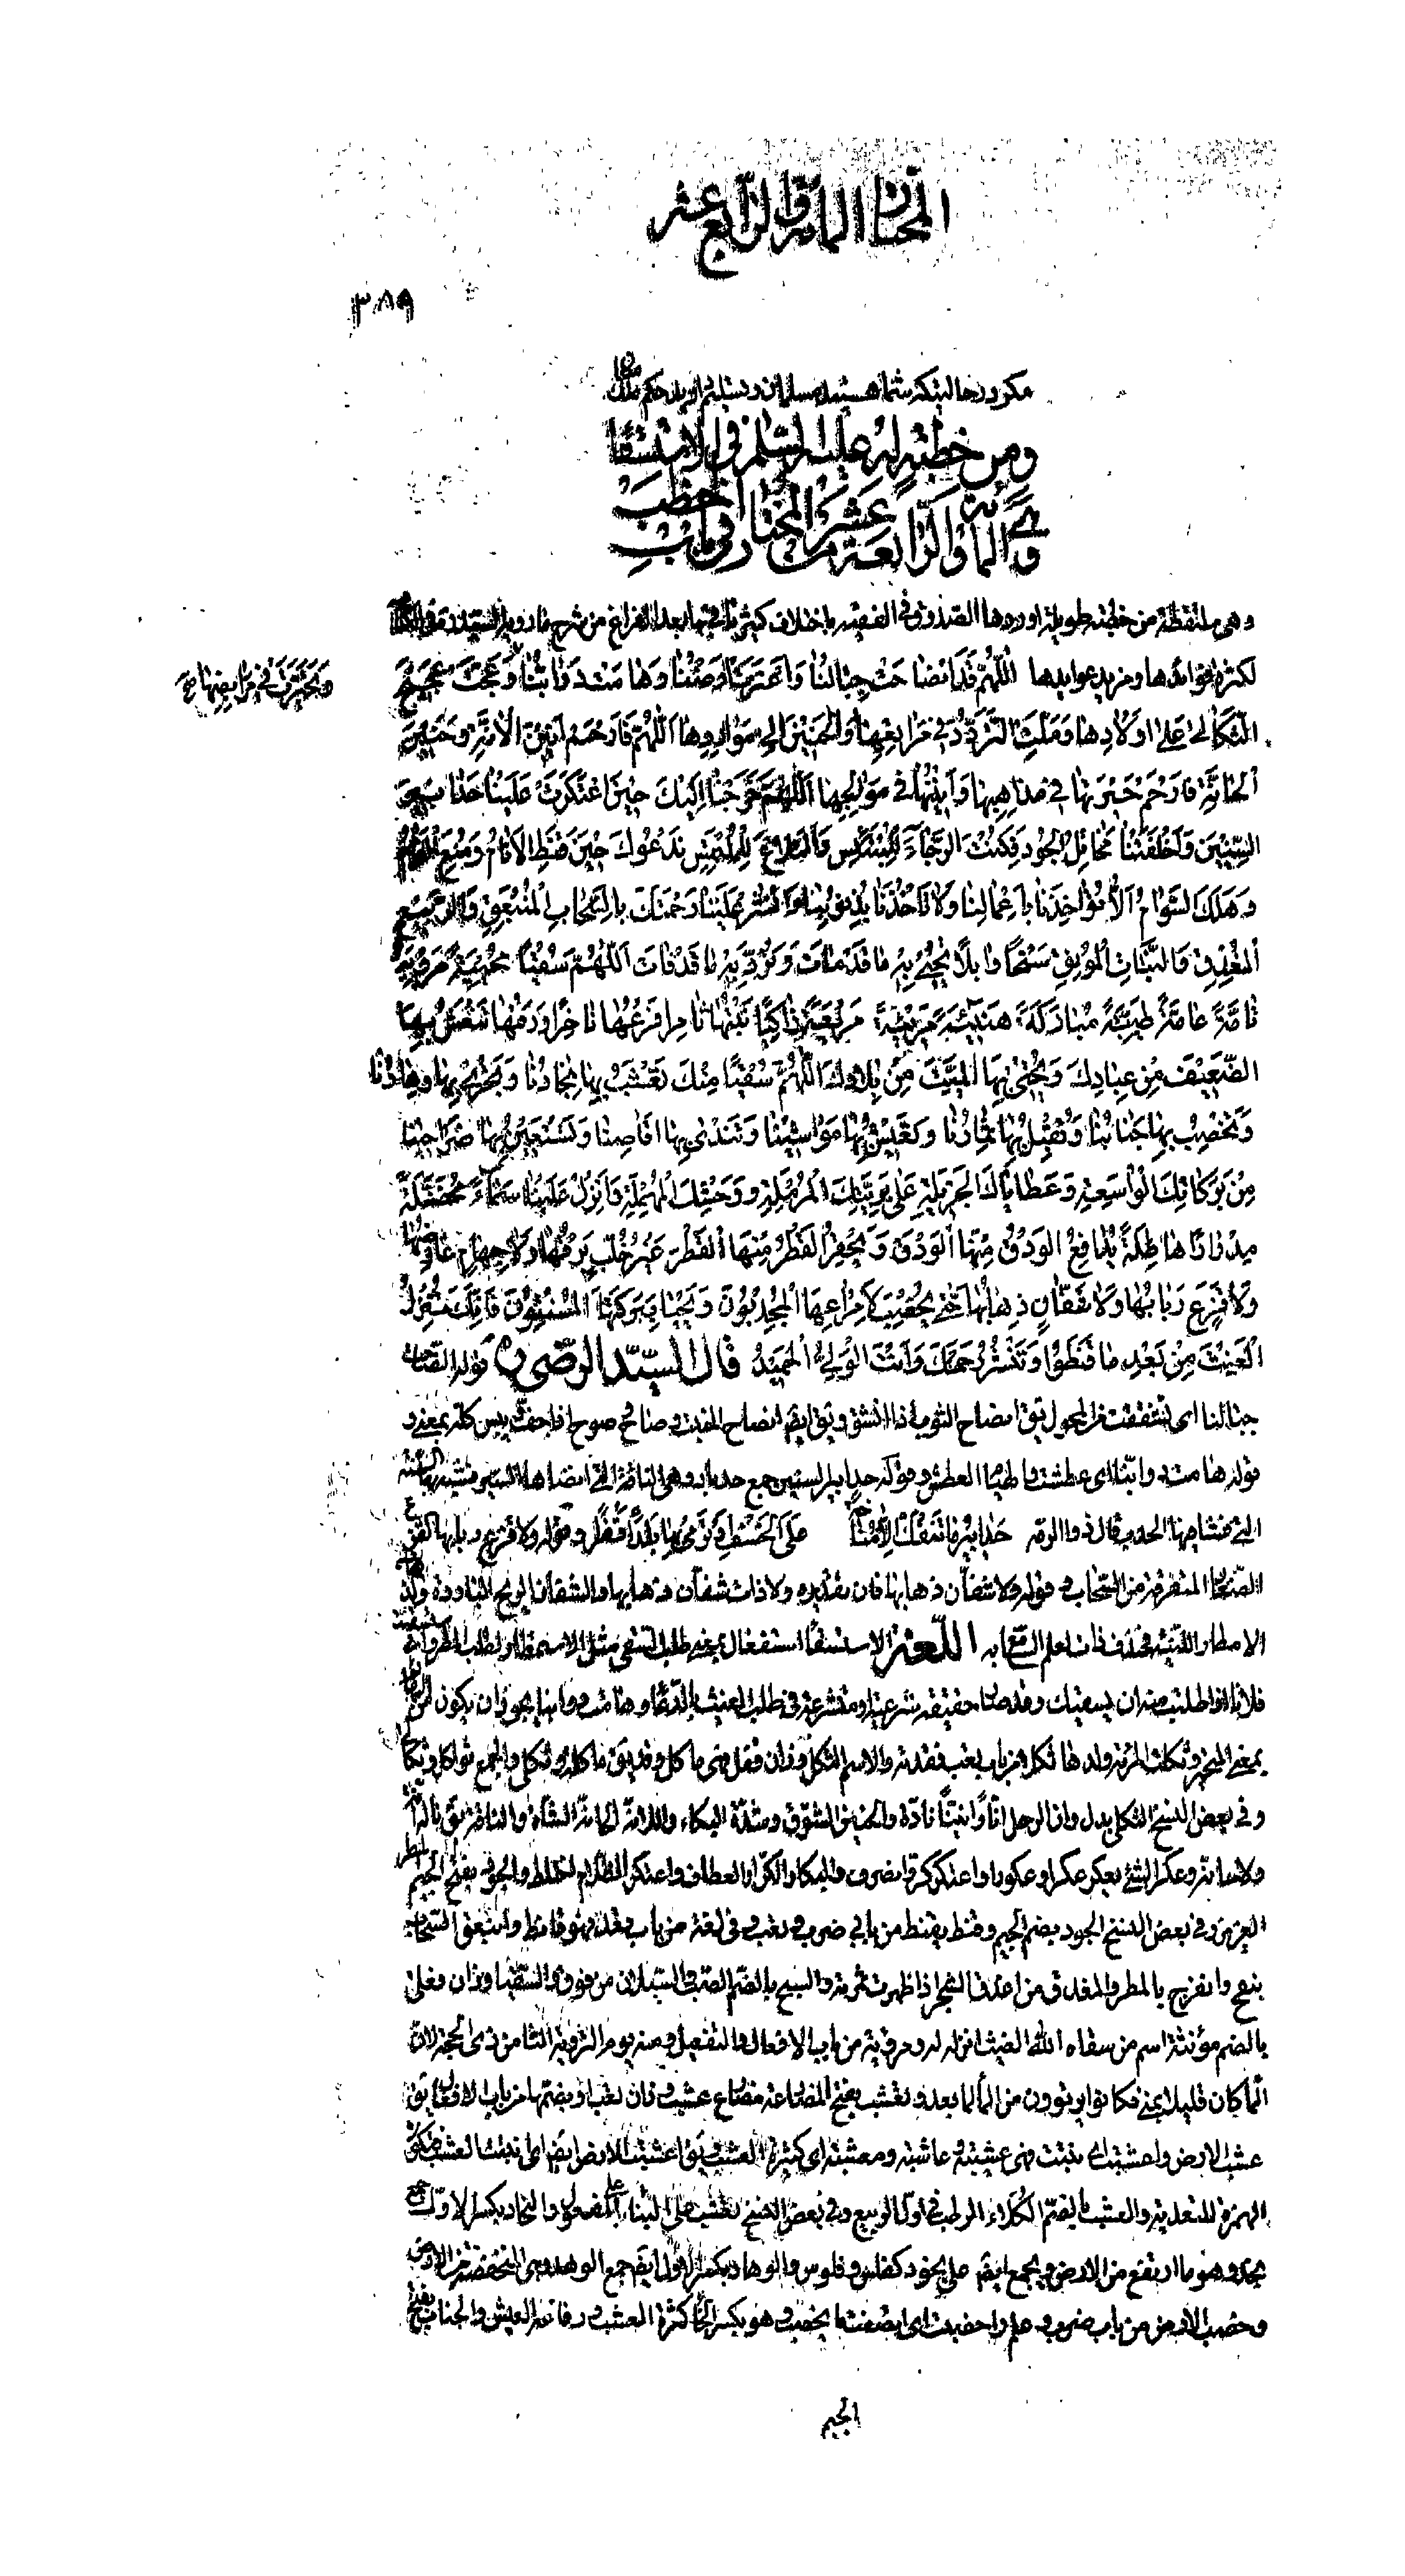 المختار المأة والرابع عشر
٣٨٩
مكر در حالتيكه شما هستيد مسلمانان
ومن خطبة له عليه السلام في الاستسقاء
وهي المأة والرابعة عشر من المختار في باب الخطب
وهى ملتقطة من خطبة طويلة اوردها الصدوق في الفقيه باختلاف كثير تاتي بعد الفراغ من شرح ما رويه السيد ره في الكتاب
لكثرة فوائدها ومزيد عوايدها اللهم قد انصاحت جبالنا واغبرت ارضنا وهامت دوابنا وعجت عجيج
وتحيرت في مرابضها
الثكالى على اولادها وملت التردد في مراتعها والحنين الى مواردها اللهم فارحم انين الانة وحنين
الحانة فارحم حيرتها في مذاهبها وانينها في موالجها اللهم خرجنا اليك حين اعتكرت علينا حدابير
السنين واخلفتنا مخائل الجود فكنت الرجاء للمبتئس والبلاغ للملتمس ندعوك حين قنط الانام ومنع الغمام
وهلك السوام الا تؤاخذنا باعمالنا ولا تاخذنا بذنوبنا وانشر علينا رحمتك بالسحاب المنبعق والربيع
المغدق والنبات المونق سحا وابلا تحيي به ما قد مات وترد به ما قد فات اللهم سقيا محيية مروية
تامة عامة طيبة مباركة هنيئة مريئة مريعة زاكيا نبتها ثامرا فرعها ناضرا ورقها تنعش بها
الضعيف من عبادك وتحيي بها الميت من بلادك اللهم سقيا منك تعشب بها نجادنا وتجري بها وهادنا
وتخصب بها جنابنا وتقبل بها ثمارنا وتعيش بها مواشينا وتندى بها اقاصينا وتستعين بها ضواحينا
من بركاتك الواسعة وعطاياك الجزيلة على بريتك المرملة ووحشك المهملة وانزل علينا سماء مخضلة
مدرارا هاطلة يدافع الودق منها الودق ويحفز القطر منها القطر غير خلب برقها ولا جهام عارضها
ولا قزع ربابها ولا شفان ذهابها حتى يخصب لامراعها المجدبون ويحيا ببركتها المسنتون فانك تنزل
الغيث من بعد ما قنطوا وتنشر رحمتك وانت الولي الحميد قال السيد الرضي ره قوله انصاحت
جبالنا اى تشققت من المحول يق انصاح الثوب اذا انشق ويق ايضا انصاح النبت وصاح وصوح اذا جف ويبس كله بمعنى و
قوله هامت دوابنا اى عطشت والهيام العطش وقوله حدابير السنين جمع حدبار وهى الناقة التي انضاها السير فشبه بها السنة
التي فشا فيها الجدب قال ذو الرمة حدابير ما تنفك الا مناخة على الخسف او نرمي بها بلدا قفرا وقوله ولا قزع ربابها القزع
القطع الصغار المتفرقة من السحاب وقوله ولا شفان ذهابها فان تقديره ولا ذات شفان ذهابها والشفان الريح الباردة والذهاب
الامطار اللينة فحذف ذات لعلم السامع به اللغة الاستسقاء استفعال بمعنى طلب السقى مثل الاستمطار لطلب المطر
فلانا اذا طلبت منه ان يسقيك وقد صار حقيقة شرعية او متشرعة في طلب الغيث بالدعاء وهامت دوابنا يجوز ان يكون
بمعنى التحير وثكلت المرئة ولدها ثكلا من باب تعب فقدته والاسم الثكل وزان قفل فهى ثاكل وقد يق ثاكلة وثكلى والجمع ثواكل وثكالى
وفي بعض النسخ الثكلى بدل وان الرجل انا وانينا تاوه والحنين الشوق وشدة البكاء والانة الشاة والحانة الناقة
وعكر الشئ يعكر عكرا وعكورا واعتكر كر وانصرف والعكار الكرار العطاف واعتكر الظلام اختلط والجود بفتح الجيم المطر
الغزير وفي بعض النسخ الجود بضم الجيم وقنط يقنط من بابي ضرب وتعب وفي لغة من باب قعد فهو قانط وانبعق السحاب
انبعج وانفرج بالمطر والمغدق من اغدق الشجر اذا ظهرت ثمرته والسح بالضم الصب والسيلان من فوق والسقيا وزان فعلى
بالضم مؤنثة اسم من سقاه الله الغيث انزله له ومروية من باب الافعال والتفعيل ومنه يوم التروية الثامن من ذى الحجة لان
الماء كان قليلا بمنى فكانوا يرتوون من الماء لما بعد وتعشب بفتح المضارعة مضارع عشب وزان تعب او بضمها من باب الافعال يق
عشب الارض واعشبت اى نبتت فهى عشيبة وعاشبة ومعشبة اى كثيرة العشب ويق اعشبت الارض ايضا اى نبتت العشب فتكون
الهمزة للتعدية والعشب بالضم الكلاء الرطب في اول الربيع وفي بعض النسخ تعشب على البناء على المفعول والنجاد بكسر الاول جمع
نجد وهو ما ارتفع من الارض ويجمع ايضا على نجود كفلس وفلوس والوهاد بكسر الاول ايضا جمع الوهدة وهى المنخفضة من الارض
وخصب الارض من باب ضرب وعلم واخصبت اى اتصفت بالخصب وهو بكسر الخاء كثرة العشب ورفاغة العيش والجناب بفتح
الجيم